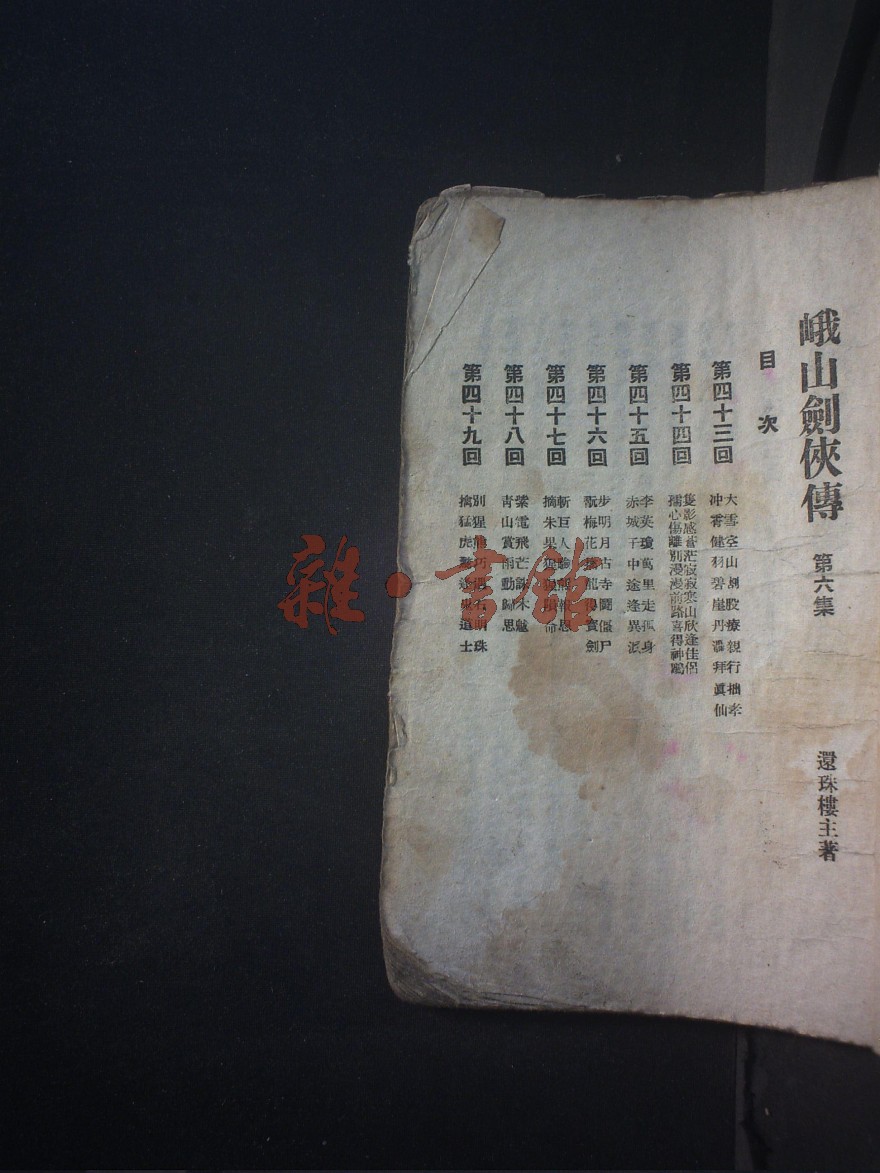 峨山劍俠傳 第六集 還珠樓主著
目次
第四十三回
大雪空山割股療親行拙孝
冲霄健羽碧崖丹澗拜眞仙
第四十四回
隻影感蒼茫寂寂寒山欣逢佳侶
孺心傷離別漫漫前路喜得神鵰
第四十五回
李英瓊萬里走孤身
赤城子中途逢異派
第四十六回
步明月古寺鬪僵尸
玩梅花擒龍得寶劍
第四十七回
斬巨人
摘朱果
第四十八回
紫電飛芒誅木魃
青山賞雨動歸思
第四十九回
別猩熊巧遇石明珠
擒猛虎驚逢鬼道士
雜·書館